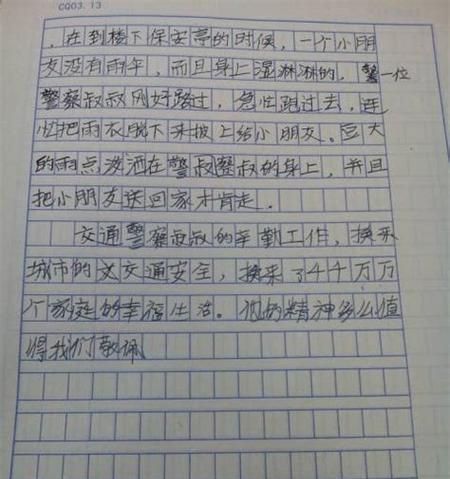 CQ03.13
，在到楼下保安亭的时候，一个小朋
友没有雨伞，而且身上湿淋淋的，一位
警察叔叔刚好路过，急忙跑过去，连
忙把雨衣脱下来披上给小朋友。豆大
的雨点泼洒在警叔叔的身上，并且
把小朋友送回家才肯走。
交通警察叔叔的辛勤工作，换来
城市的交通安全，换来了千千万万
个家庭的幸福生活。他的精神多么值
得我们敬佩